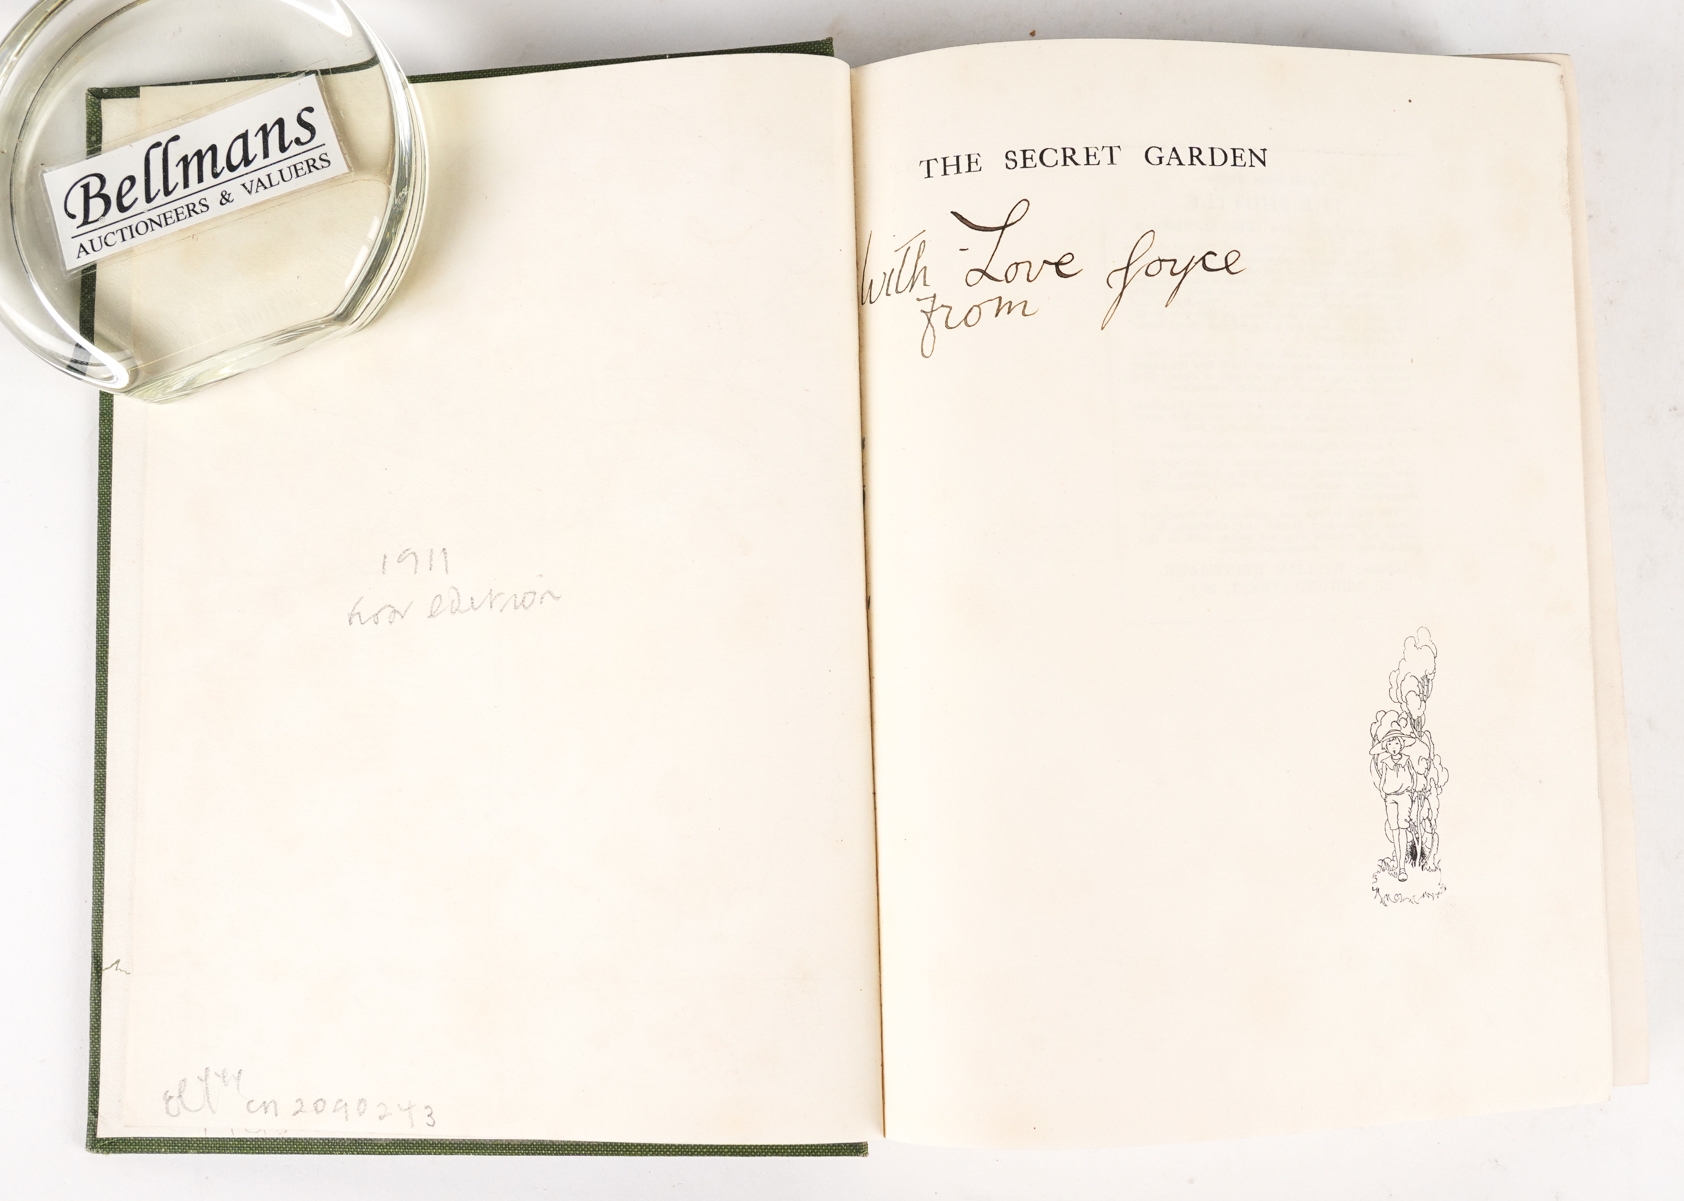 Bellmans
AUCTIONEERS & VALUERS
1911
edition
cn 2090243
THE SECRET GARDEN
with Love Joyce
from